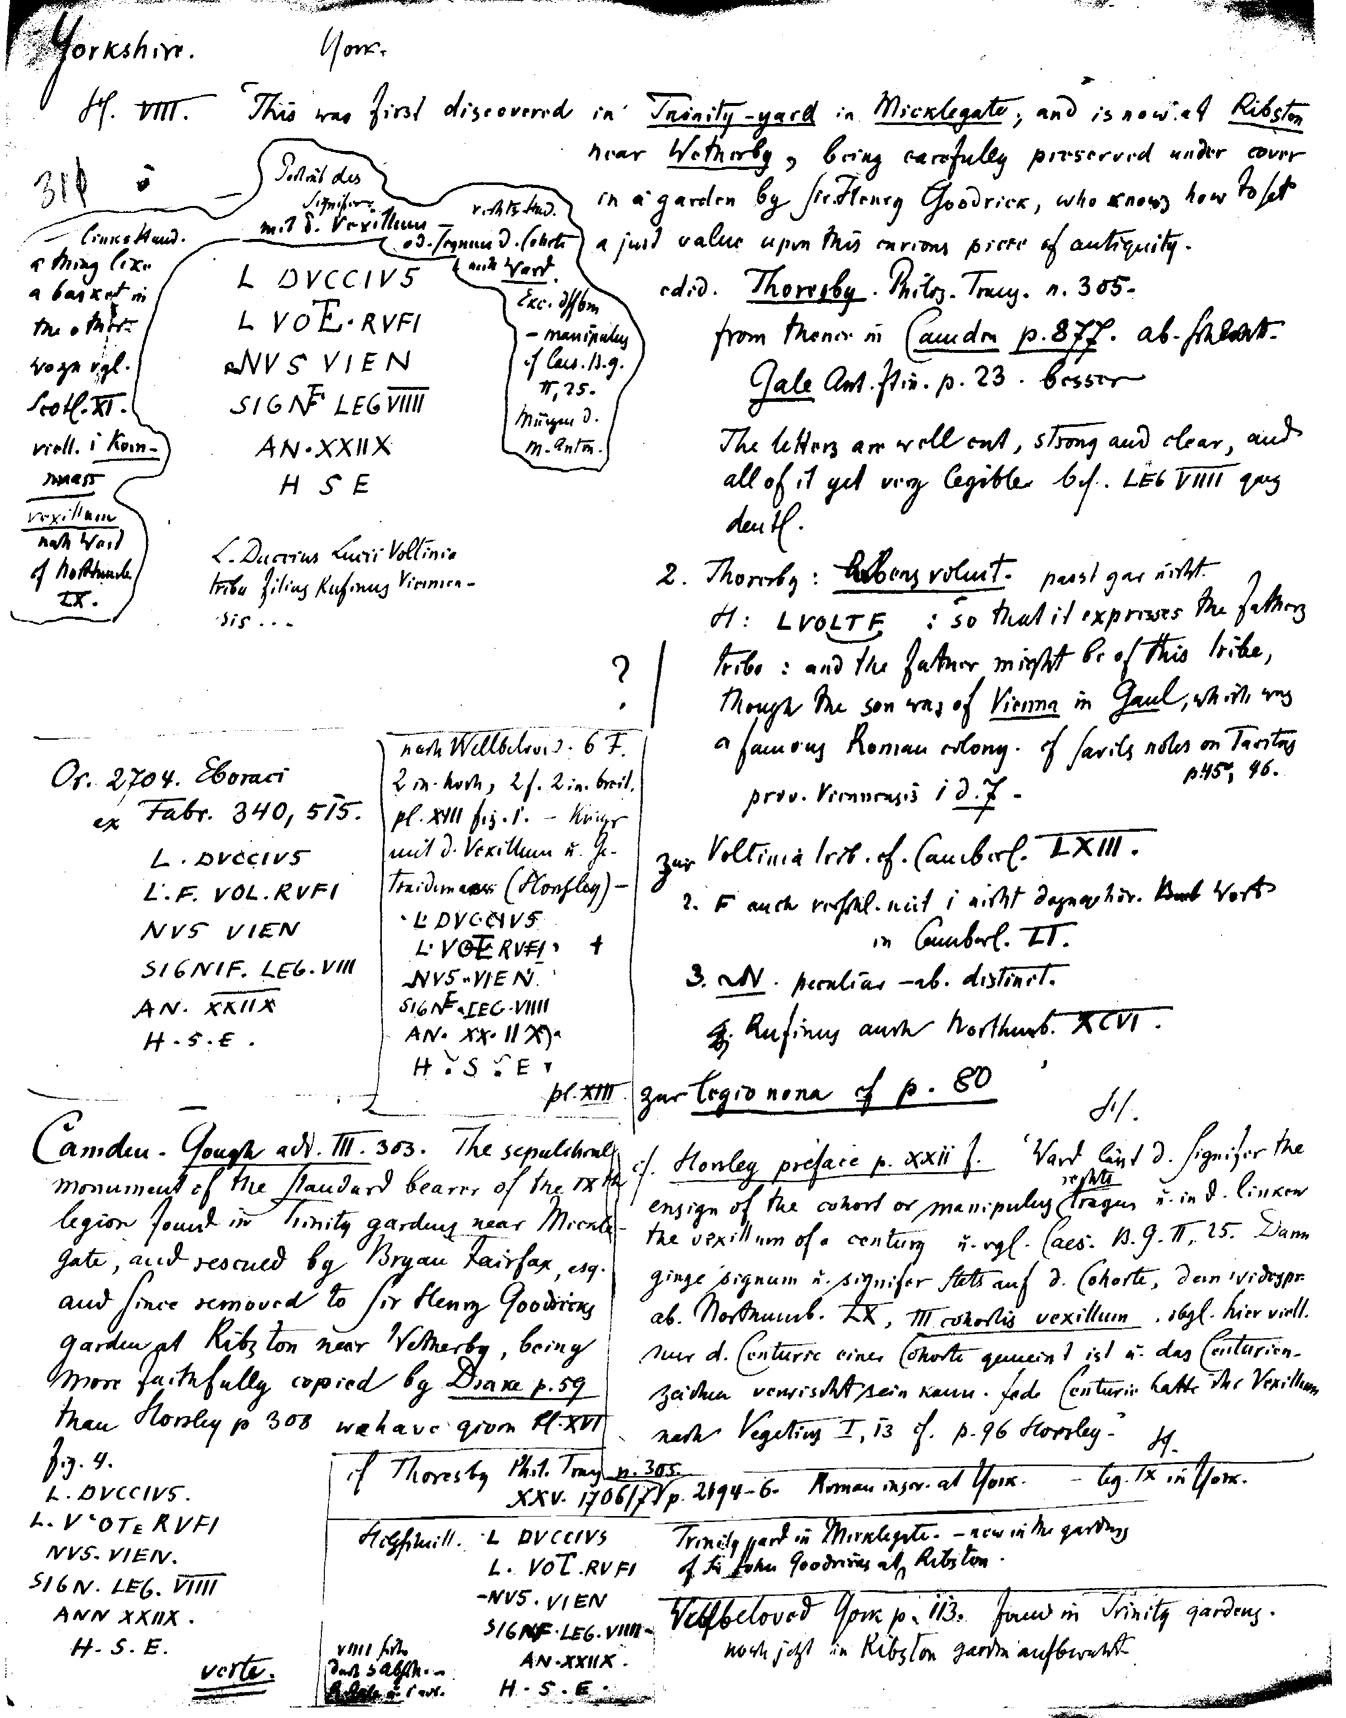 Yorkshire. York.
H. VIII. "This was first discovered in Trinity-yard in Micklegate, and is now at Ribston
near Wetherby, being carefully preserved under cover
in a garden by Sir Henry Goodrick, who knows how to set
a just value upon this curious piece of antiquity.
edid. Thoresby. Philos. Trans. n. 305.
from thence in Camden p. 877.
Gale Ant. Itin. p. 23. besser
The letters are well cut, strong and clear, and
all of it yet very legible bes. LEG VIIII ganz
deutl.
2. Thoresby: volvit. passt gar nicht.
H: L VOLT F : so that it expresses the fathers
tribe: and the father might be of this tribe,
though the son was of Vienna in Gaul, which was
a famous Roman colony. cf Savils notes on Tacitus
p. 45, 46.
prov. Viennensis
zur Voltinia trib. cf. Cumberl. LXIII.
2. F auch verschl. mit i nicht
in Cumberl. LI.
3. N. peculiar - ab. distinct.
Rufinus auch Northumb. XCVI.
zur legio nona cf p. 80
311
Portrait des
Signifer
mit d. Vexillum
rechts Hand.
od. Signum d. Cohorte
nach Ward.
manipulus
cf Caes. B.g.
II, 25.
Münzen d.
M. Anton.
linke Hand.
a thing like
a basket in
the other
wozu vgl.
Scotl. XI.
viell. i Korn-
maass
vexillum
nach Ward
cf Northumb.
IX.
L DVCCIVS
L VOTE·RVFI
NVS VIEN
SIGNF LEG VIIII
AN·XXIIX
H S E
L. Duccius Lucii Voltinia
tribu filius Rufinus Viennen-
sis ...
?
Or. 2704. Eboraci
ex Fabr. 340, 515.
L. DVCCIVS
L. F. VOL. RVFI
NVS VIEN
SIGNIF. LEG. VIII
AN. XXIIX
H. S. E.
nach Wellbeloved. 6 F.
2 in. hoch, 2 f. 2 in. breit.
pl. XIII fig. 1. - Krieger
mit d. Vexillum u. Ge-
traidemaass (Horsley) -
L DVCCIVS
L. VOTE RVFI +
NVS. VIEN
SIGNF. LEG. VIIII
AN. XX. IIX
H. S. E
pl. XIII
Camden-Gough adv. III. 303. The sepulchral
monument of the standard bearer of the IXth
legion found in Trinity gardens near Mickle-
gate, and rescued by Bryan Fairfax, esq.
and since removed to Sir Henry Goodricks
garden at Ribston near Wetherby, being
more faithfully copied by Drake p. 59
than Horsley p 308 we have given Pl. XVI
fig. 4.
L. DVCCIVS.
L. VOTE RVFI
NVS. VIEN.
SIGN. LEG. VIIII
ANN XXIIX.
H. S. E.
verte.
H.
cf. Horsley preface p. XXII f. 'Ward lässt d. Signifer the
ensign of the cohort or manipulus rechts tragen u. in d. linken
the vexillum of a century u. vgl. Caes. B. G. II, 25. Dann
ginge signum u. signifer stets auf d. Cohorte, dem widerspr.
ab. Northumb. IX, III cohortis vexillum, vgl. hier viell.
nur d. Centurie einer Cohorte gemeint ist u. das Centurien-
zeichen verwischt sein kann. Jede Centurie hatte ihr Vexillum
nach Vegetius I, 13 cf. p. 96 Horsley.
H.
cf Thoresby Phil. Trans n. 305.
XXV. 1706/7 p. 2194-6. Roman inscr. at York. - leg. IX in York.
Holzschnitt.
L DVCCIVS
L. VOT. RVFI
NVS. VIEN
SIGNF. LEG. VIIII
AN. XXIIX.
H. S. E.
Trinity yard in Micklegate. - now in the gardens
of Sir John Goodricks at Ribston.
Wellbeloved York p. 113. found in Trinity gardens.
noch jetzt in Ribston garden aufbewahrt